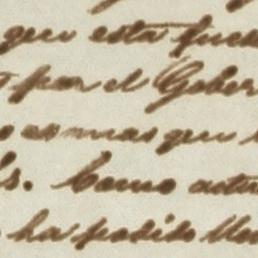 que esta fue
por el Gober
o es mas que
ls. Como actu
ha podido lle